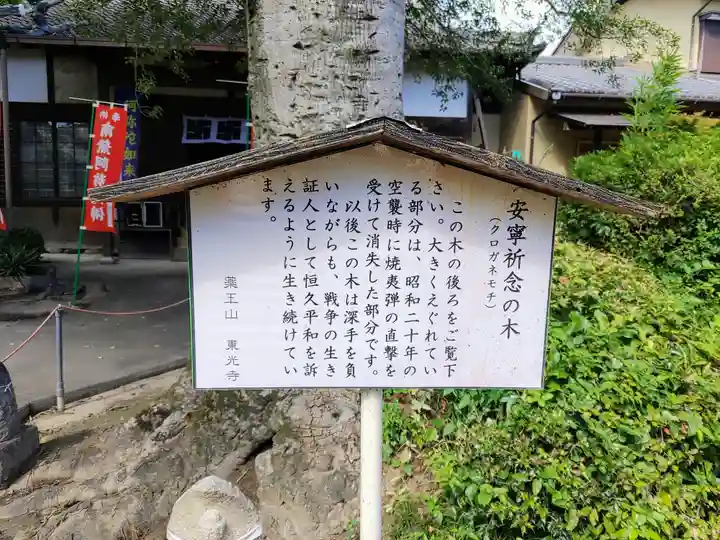 安寧祈念の木
(クロガネモチ)
この木の後ろをご覧下
さい。大きくえぐれてい
る部分は、昭和二十年の
空襲時に焼夷弾の直撃を
受けて消失した部分です。
以後この木は深手を負
いながらも、戦争の生き
証人として恒久平和を訴
えるように生き続けてい
ます。
薬王山 東光寺
阿弥陀如来